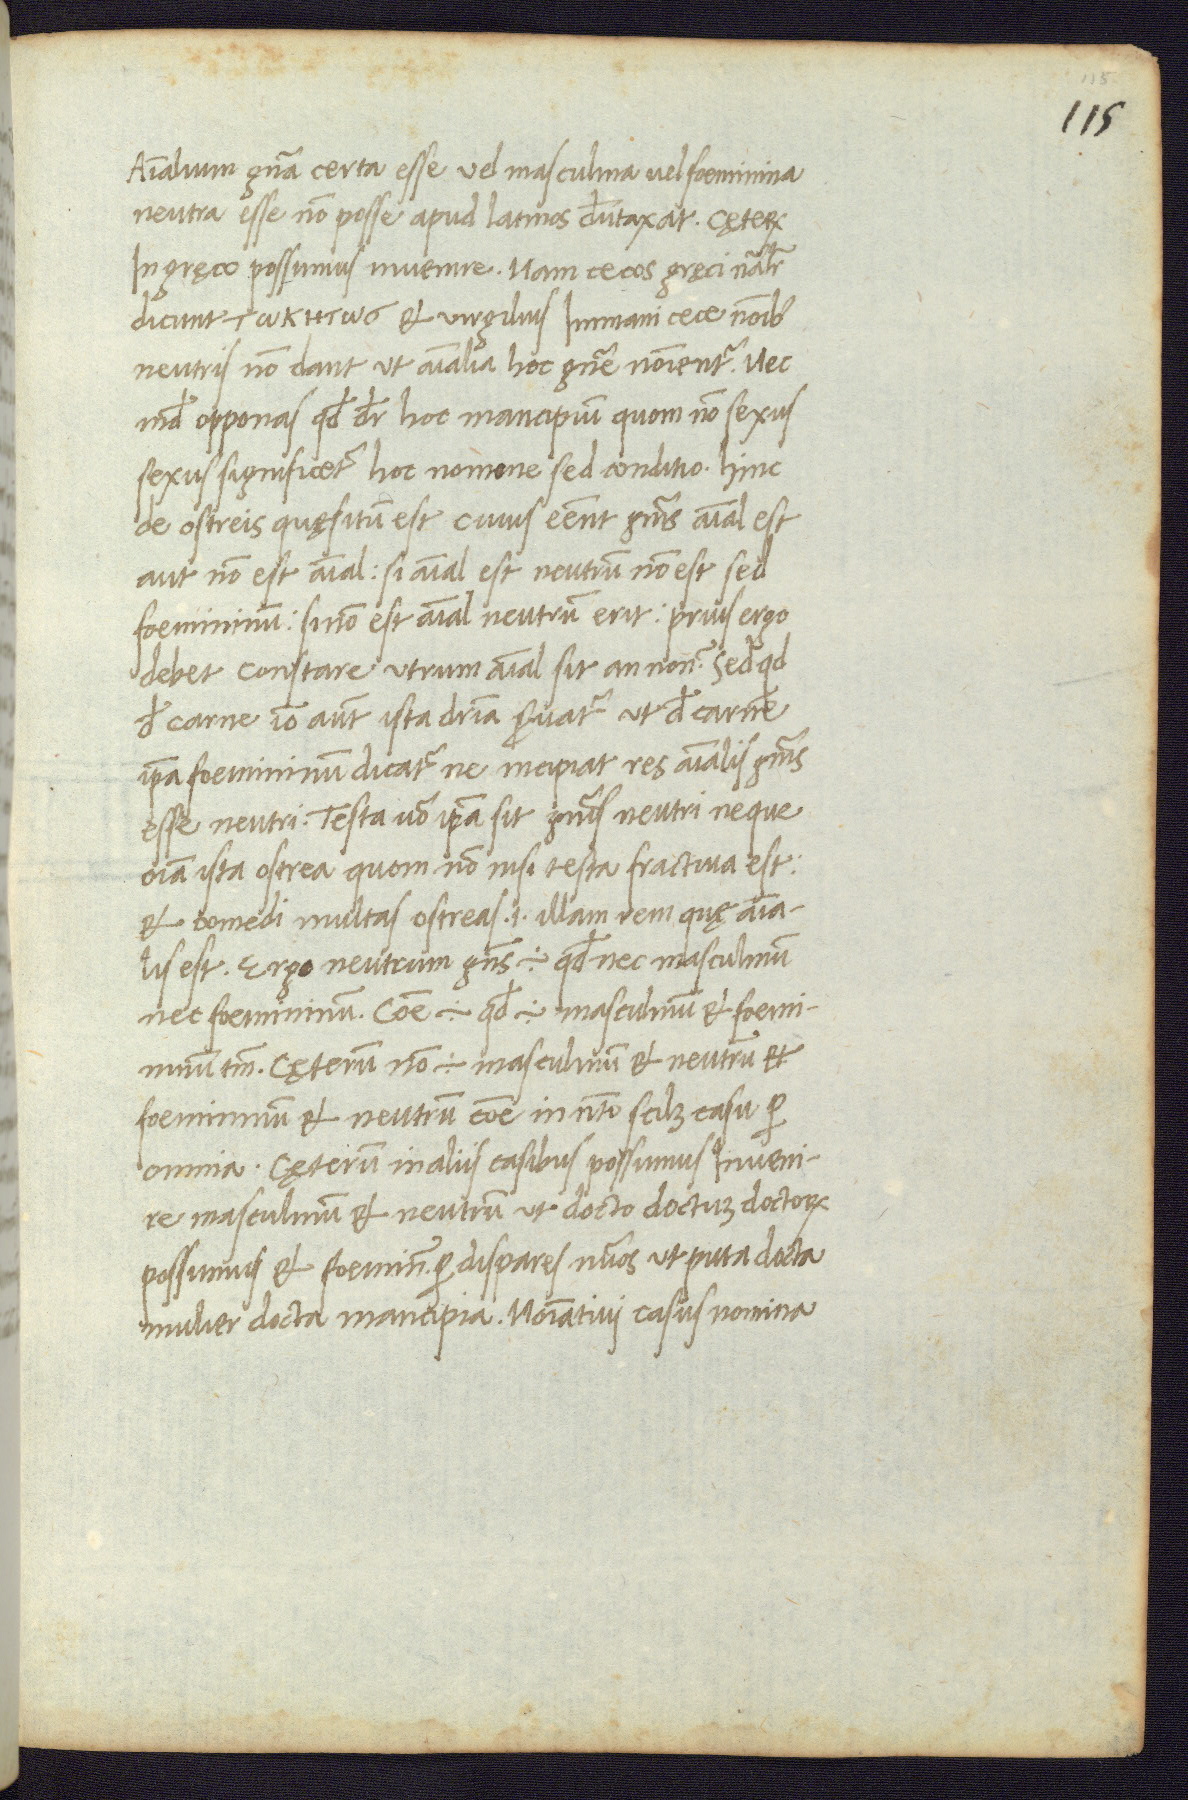 115
115
Aı̄alium gn̄a certa esse vel masculina uel foeminina
neutra esse nō posse apud latinos dūtaxat. Cęteꝝ
In gręco possumus inuenire. Nam cecos gręci nālr
dicunt τωκητωσ & virgilius Inmani cece noı̄b
neutris nō dant vt aı̄alia hoc gn̄e noı̄ent᷑. Nec
md̄ opponas qd̄ dr̄ hoc mancipiū quom nō sexus
sexus significet᷑ hoc nomine sed conditio. hinc
de ostreis quęsitū est cuius eēnt gn̄is aı̄al est
aut nō est aı̄al: si aı̄al est neutrū nō est sed
foemininū: si nō est aı̄al neutrū erit: prius ergo
debet constare utrum aı̄al sit an non: Sed qd
d̄ carne iō aūt ista dr̄ia ꝑuat᷑ ut d̄ carne
ip̄a foemininū dicat᷑ ne incipiat res aı̄alis gn̄is
esse neutri. Testa uō ip̄a sit gn̄is neutri neque
oı̄a ista ostrea quom nō nisi testa fractiua est:
& comedi multas ostreas .i. illam rem quę aı̄a-
lis est. Ergo neutrum gn̄s ÷ qd̄ nec masculinū
nec foemininū. Coē ÷ qd̄ ÷ masculinū & foemi-
ninū tm̄. Cęterū nō ÷ masculinū & neutrū et
foemininū & neutrū coē in nt̄o scilꝫ casu ꝑ
omnia. Cęterū in aliis casibus possumus Inueni-
re masculinū & neutrū ut docto doctuꝫ doctoꝝ
possumus & foemin̄. ꝑ dispares nūos ut puta docta
mulier docta mancipia. Noı̄atiui casus nomina